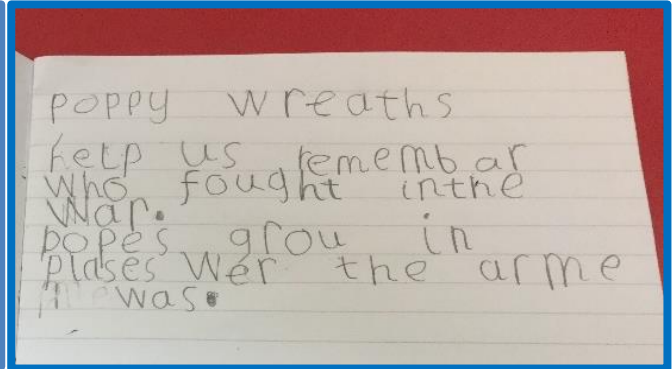 poppy wreaths
help us remembar
who fought inthe
War.
popes grou in
plases wer the arme
was.